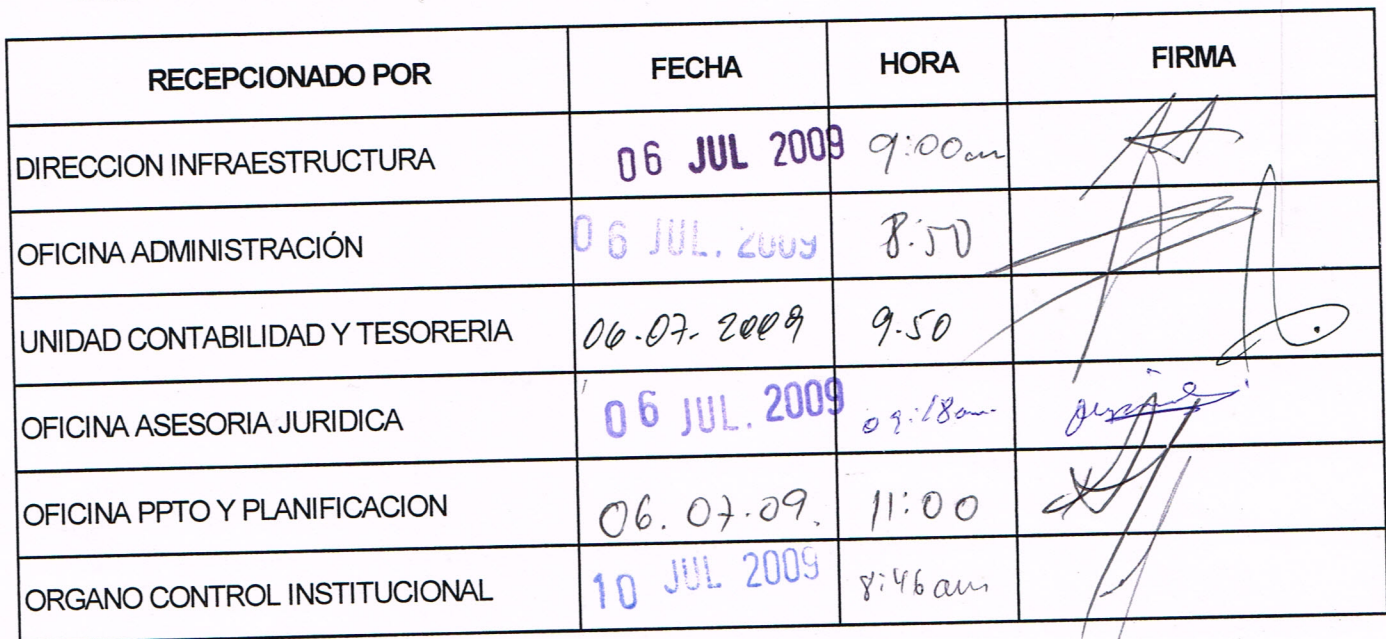 RECEPCIONADO POR FECHA HORA FIRMA
DIRECCION INFRAESTRUCTURA 06 JUL 2009 9:00am
OFICINA ADMINISTRACIÓN 06 JUL. 2009 8:50
UNIDAD CONTABILIDAD Y TESORERIA 06.07.2009 9.50
OFICINA ASESORIA JURIDICA 06 JUL. 2009 09:18am
OFICINA PPTO Y PLANIFICACION 06.07.09. 11:00
ORGANO CONTROL INSTITUCIONAL 10 JUL 2009 8:46am